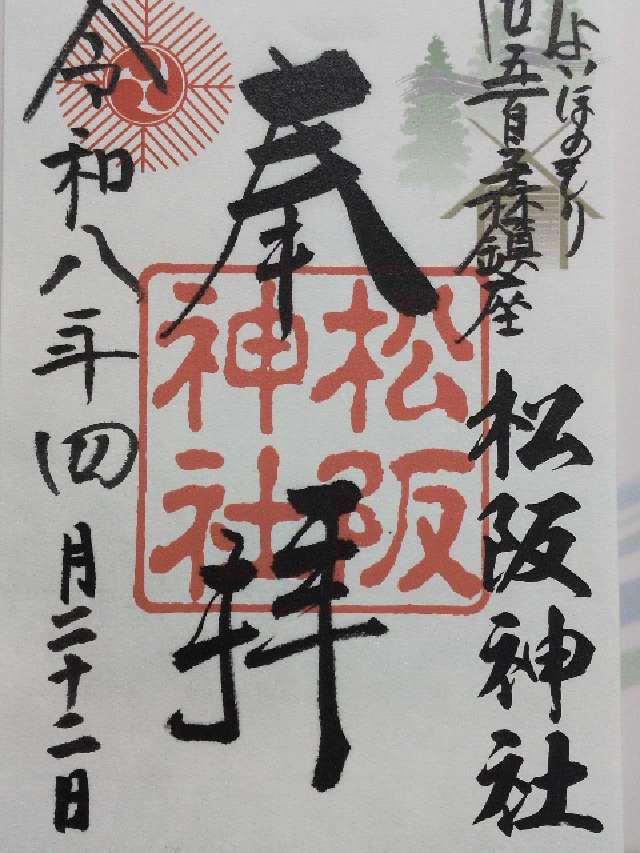 よいほのもり
五百森鎮座
松阪神社
奉拝
松阪
神社
令和八年四月二十二日